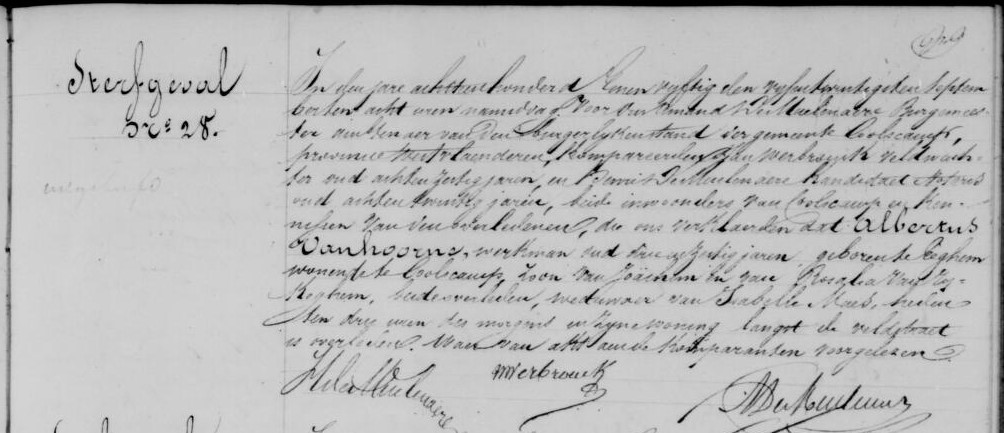 Sterfgeval
N.o 28.
In den jare achttien honderd Eenen vyftig den vyfentwintigsten Septem
ber ten acht uren namiddag. Voor Ons Amand De Meulenaere Burgemees-
ter ambtenaer van den burgerlyken stand der gemeente Coolscamp,
provincie Westvlaenderen, kompareerden Jan Werbrouck veldwach-
ter oud achten jaren, en Benoit De Meulenaere kandidaet Notaris
oud achtentwintig jaren, beide inwoonders van Coolscamp en Ken-
nissen van den overledenen, die ons verklaerden dat Albertus
Vanhoorne, werkman oud jaren geboren te
wonende te Coolscamp, zoon van Joachim en van Rosalia Van
beide overleden, weduwaer van Isabelle Maes, heden
ten dry uren des morgens in zyne woning langst de veldstraet
is overleden. Waer van akt aen de Komparanten voorgelezen
Werbrouck
De Meulenaere